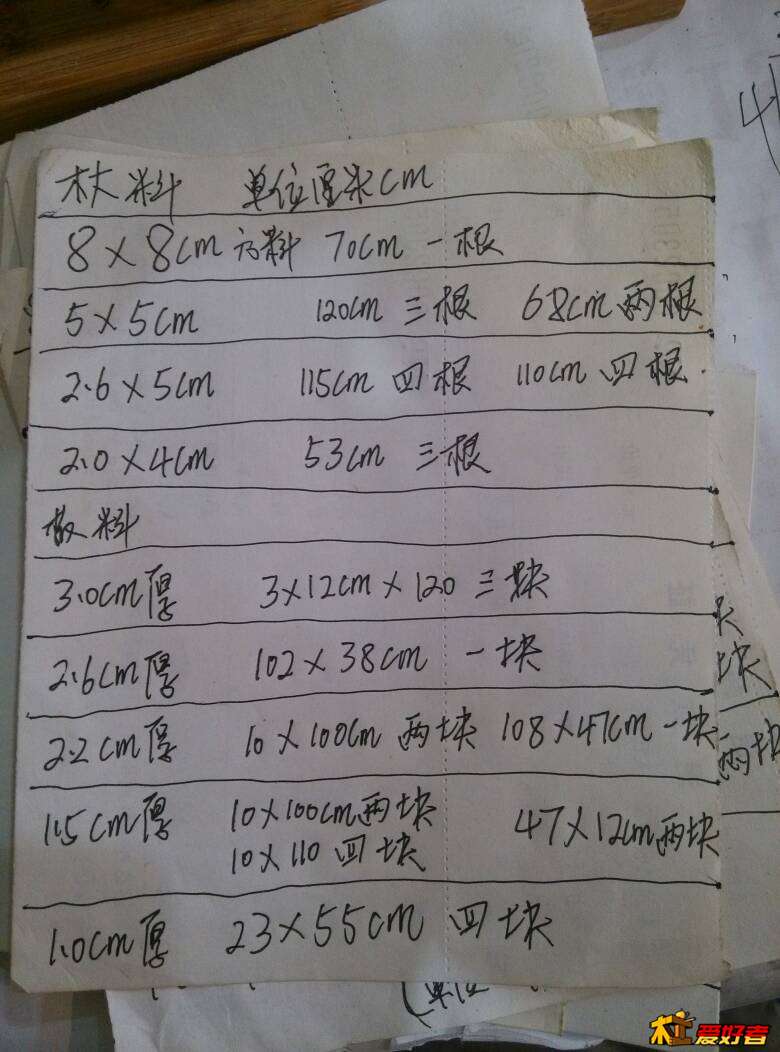 木大料 单位厘米cm
8×8cm 方料 70cm 一根
5×5cm 120cm 三根 68cm 两根
2.6×5cm 115cm 四根 110cm 四根.
2.0×4cm 53cm 三根
散料
3.0cm厚 3×12cm×120 三块
2.6cm厚 102×38cm 一块
2.2cm厚 10×100cm 两块 108×47cm 一块
1.5cm厚 10×100cm两块 47×12cm两块
10×110 四块
1.0cm厚 23×55cm 四块
块
两块
(单位
木工爱好者